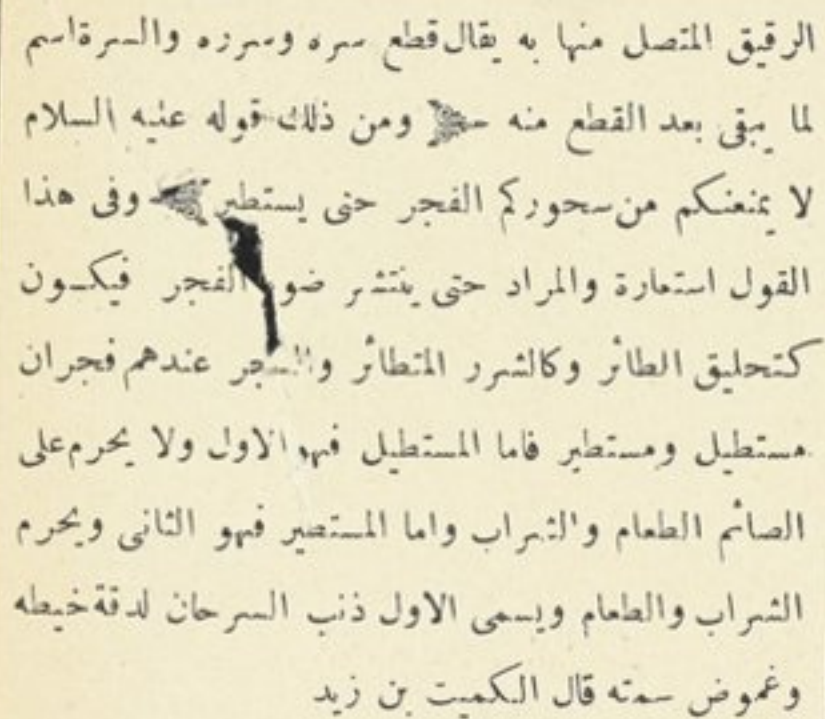 الرقيق المتصل منها به يقال قطع سره وسرره والسرة اسم
لما يبقى بعد القطع منه ومن ذلك قوله عليه السلام
لا يمنعنكم من سحوركم الفجر حتى يستطير وفى هذا
القول استعارة والمراد حتى ينتشر ضو الفجر فيكون
كتحليق الطائر وكالشرر المتطائر والفجر عندهم فجران
مستطيل ومستطير فاما المستطيل فهو الاول ولا يحرم على
الصائم الطعام والشراب واما المستطير فهو الثانى ويحرم
الشراب والطعام ويسمى الاول ذنب السرحان لدقة خيطه
وغموض سمته قال الكميت بن زيد